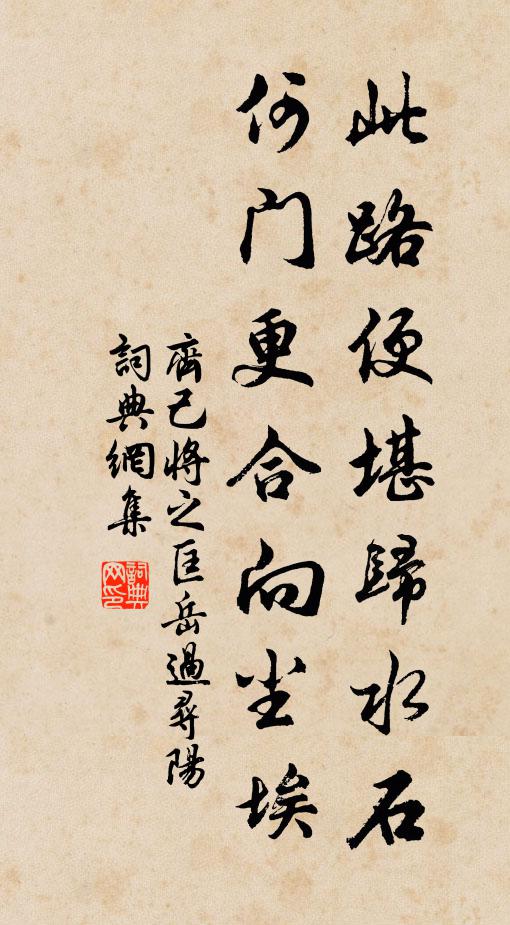 此路便堪歸水石
何门更合向尘埃
齊己将之匡岳過尋陽
詞典網集
詞典网印